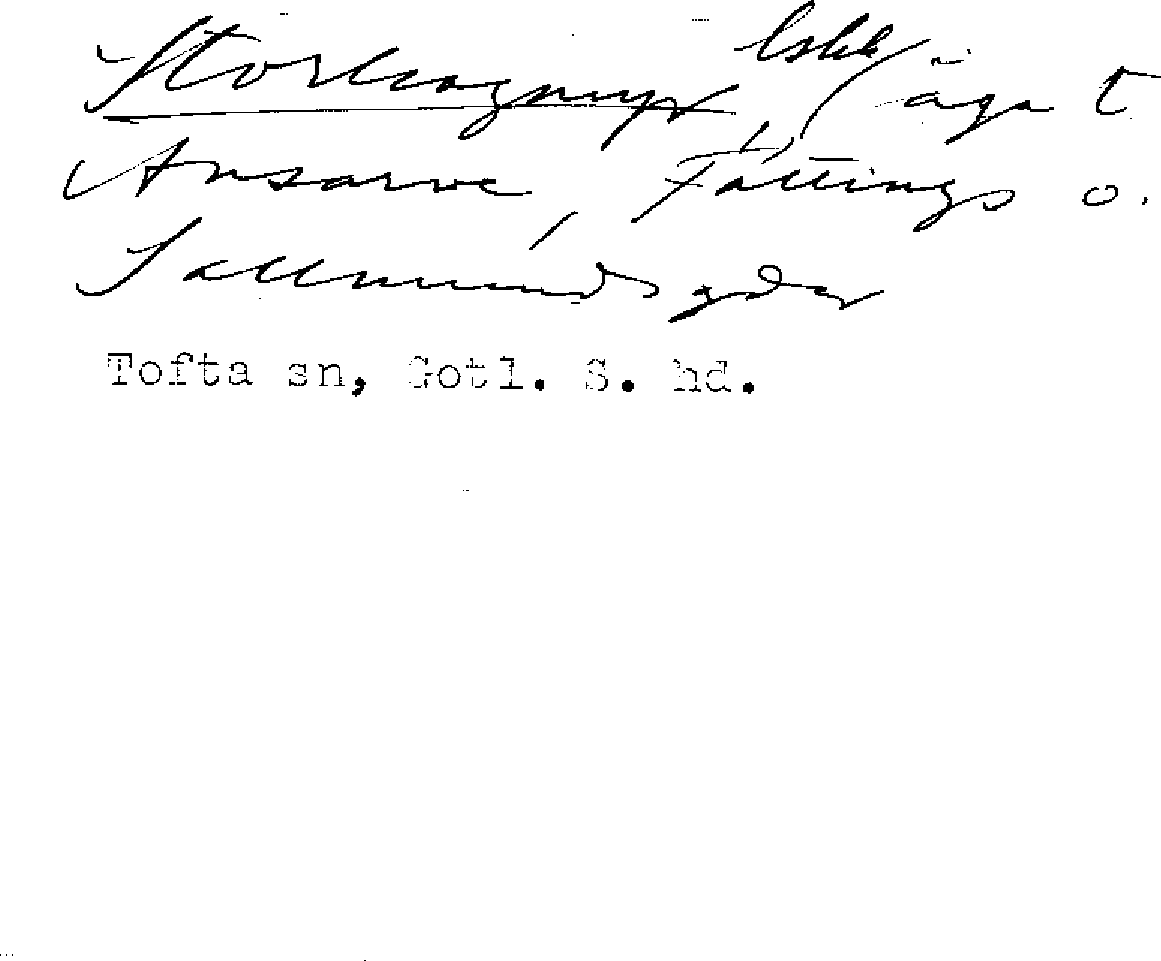 Storhagmyr, (äga t
Ansarve, Fättings o.
Sallmunds gdar
Tofta sn, Gotl. S. hd.